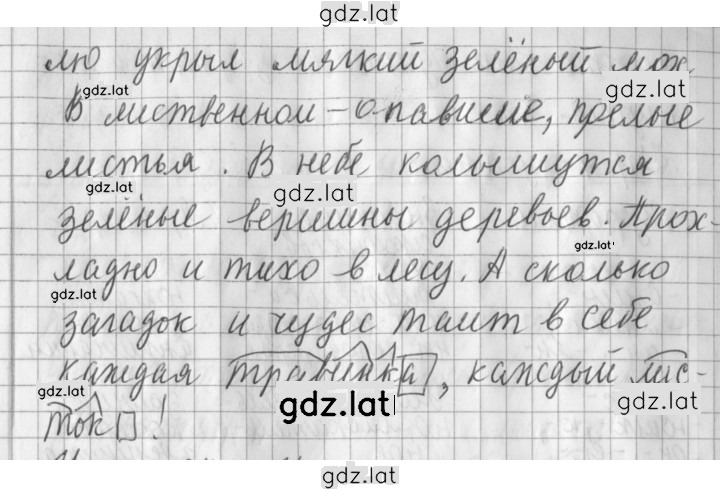 gdz.lat
лю укрыл мягкий зелёный мох.
gdz.lat
gdz.lat
В лиственном – опавшие, прелые
листья. В небе колышутся
gdz.lat
gdz.lat
зелёные вершины деревьев. Прох-
gdz.lat
ладно и тихо в лесу. А сколько
gdz.lat
загадок и чудес таит в себе
каждая травинка, каждый лис-
gdz.lat
gdz.lat
gdz.lat
ток!
gdz.lat